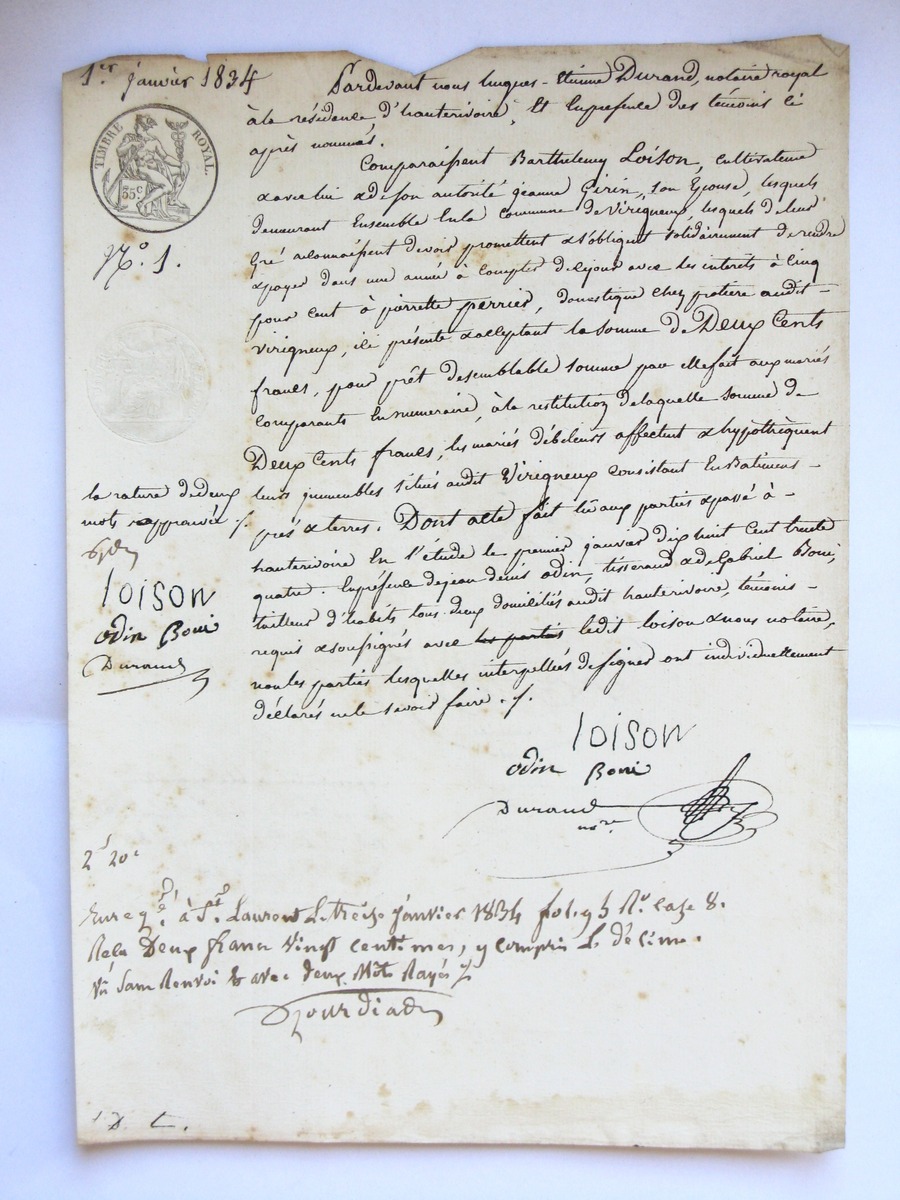 1er janvier 1834
Pardevant nous hugues-Etienne Durand, notaire royal
à la résidence d'hauterivoire, Et En presence des témoins ci
après nommés.
TIMBRE ROYAL.
35 c
Comparaissent Barthelemy Loison, cultivateur
& avec lui & de son autorité jeanne Girin, son Epouse, lesquels
demeurant Ensemble En la commune de Virigneux, lesquels de leur
N.o 1.
Gré reconnaissent devoir promettent & s'obligent solidairement de rendre
& payer dans une année à compter de ce jour avec les interets à cinq
pour cent à pierrette perrier, domestique chez patiere audit-
virigneux, ici présente & acceptant la somme de Deux Cents
francs, pour prêt de semblable somme par elle fait aux mariés
comparants En numeraire, à la restitution de laquelle somme de
Deux Cents francs, les mariés débiteurs affectent & hypothèquent
leurs immeubles situés audit Virigneux consistant En Batiments-
prés & terres. Dont acte fait lu aux parties & passé à-
hauterivoire En l'étude le premier janvier dix huit cent trente
quatre. En présence de jean denis odin, tisserand & de Gabriel Boni,
tailleur d'habits tous deux domiciliés audit hauterivoire, témoins-
requis & soussignés avec les parties ledit loison & nous notaire,
non les parties lesquelles interpellées de signer ont individuellement
déclarés ne le savoir faire ./.
la rature de deux
mots approuvée ./.
loison
odin Boni
Durand
loison
odin Boni
Durand
nore
2f 20c
Enregé. à St. Laurent le treize janvier 1834 fol. 95 Ro. case 8.
Reçu Deux francs vingt centimes, y compris le décime.
vu sans Renvoi & avec deux Mots Rayés